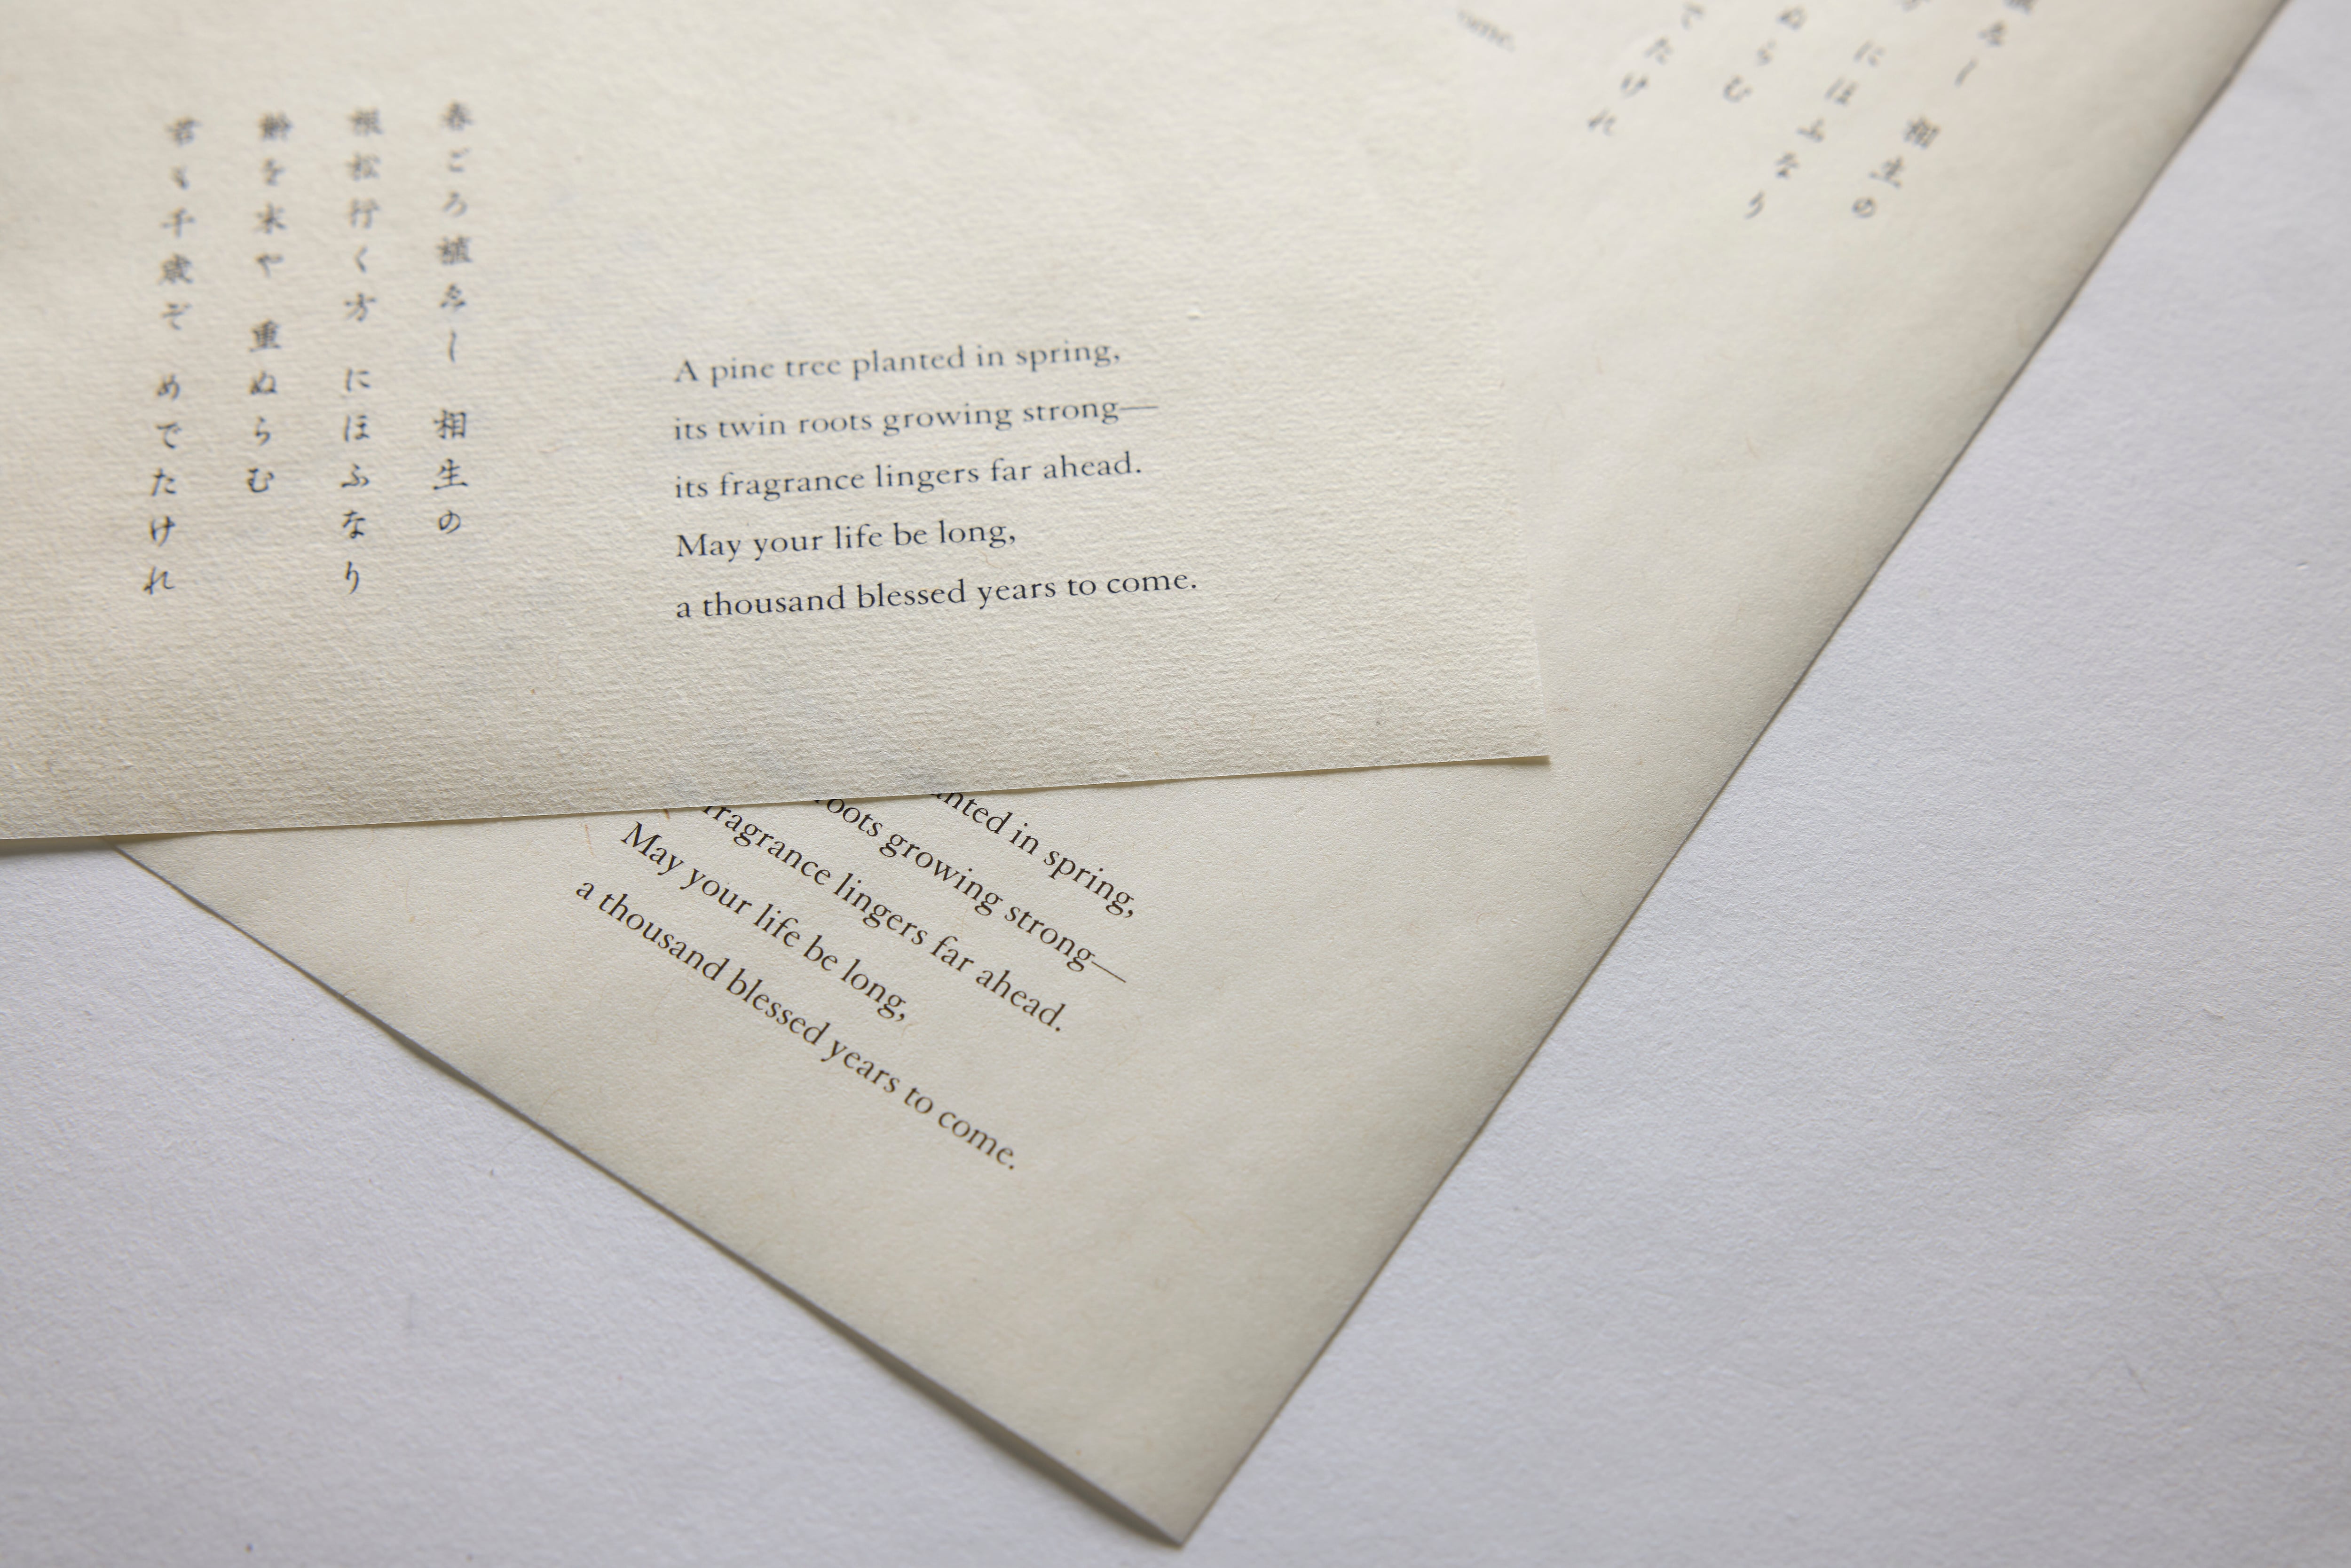 春ごろ植ゑし 相生の
根松行く方 にほふなり
齢を末や 重ぬらむ
君も千歳ぞ めでたけれ
A pine tree planted in spring,
its twin roots growing strong—
its fragrance lingers far ahead.
May your life be long,
a thousand blessed years to come.
ゑし 相生の
にほふなり
ぬらむ
でたけれ
anted in spring,
roots growing strong—
fragrance lingers far ahead.
May your life be long,
a thousand blessed years to come.